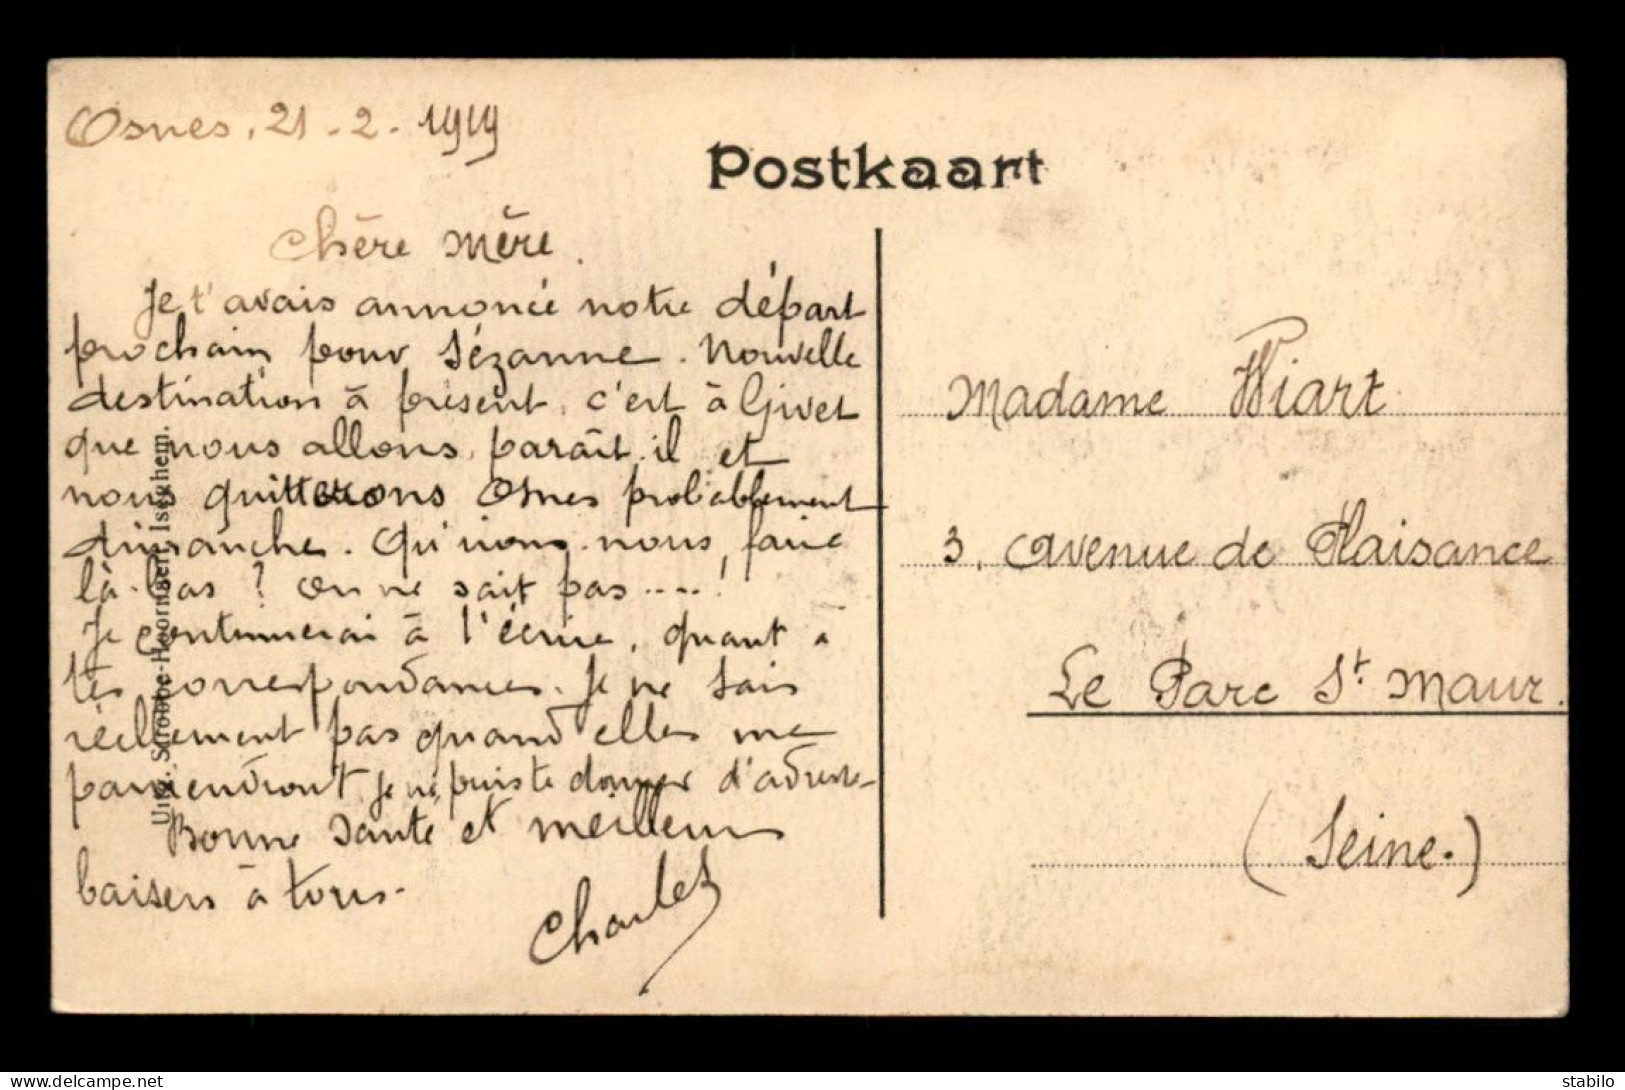 Osnes, 21-2-1919
Postkaart
Chère mère.
Je t'avais annoncé notre départ
prochain pour Sézanne. Nouvelle
destination à présent, c'est à Givet
que nous allons, paraît-il et
nous quitterons Osnes probablement
dimanche. Qu'irons-nous faire
là-bas ? On ne sait pas ....!
Je continuerai à t'écrire, quant à
tes correspondances. Je ne sais
réellement pas quand elles me
parviendront je ne puis te donner d'adresse-
Bonne santé et meilleurs
baisers à tous.
Charles
Uitg. Strobbe-Hoornaert, Iseghem.
Madame Wiart
3, avenue de Plaisance
Le Parc St. Maur.
(Seine.)
delcampe.net
stabilo